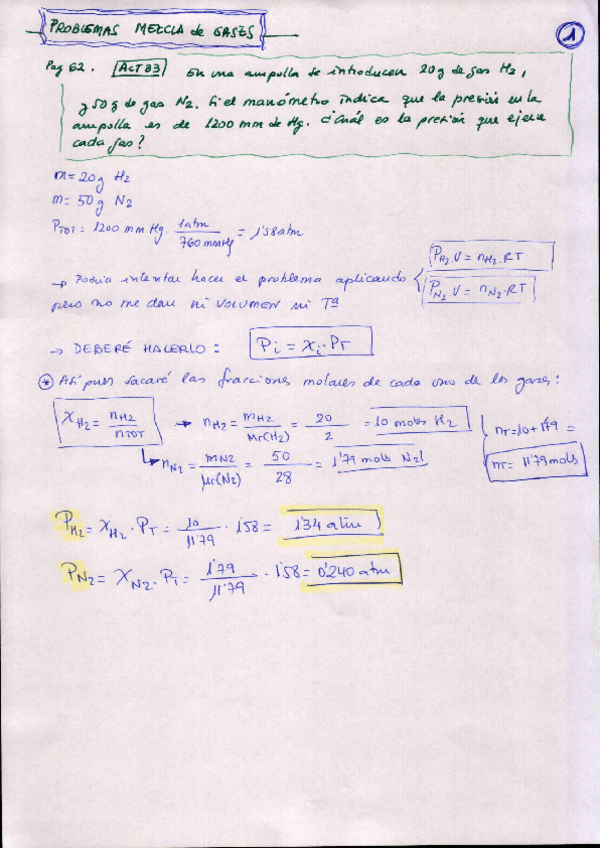 PROBLEMAS MEZCLA de GASES
1
Pag 62. ACT 83 En una ampolla se introducen 20 g de gas H2,
y 50 g de gas N2. Si el manómetro indica que la presión en la
ampolla es de 1200 mm de Hg. ¿Cuál es la presión que ejerce
cada gas?
m = 20 g H2
m = 50 g N2
PTOT = 1200 mm Hg. 1 atm / 760 mmHg = 1'58 atm
→ Podría intentar hacer el problema aplicando { PH2.V = nH2.RT
pero no me dan ni VOLUMEN ni Tª PN2.V = nN2.RT
→ DEBERÉ HACERLO: Pi = Xi.PT
* Así pues sacaré las fracciones molares de cada uno de los gases:
XH2 = nH2 / nTOT → nH2 = mH2 / Mr(H2) = 20 / 2 = 10 mols H2 { nT = 10 + 1'79 =
↳ nN2 = mN2 / Mr(N2) = 50 / 28 = 1'79 mols N2 nT = 11'79 mols
PH2 = XH2 . PT = 10 / 11'79 . 1'58 = 1'34 atm
PN2 = XN2 . PT = 1'79 / 11'79 . 1'58 = 0'240 atm